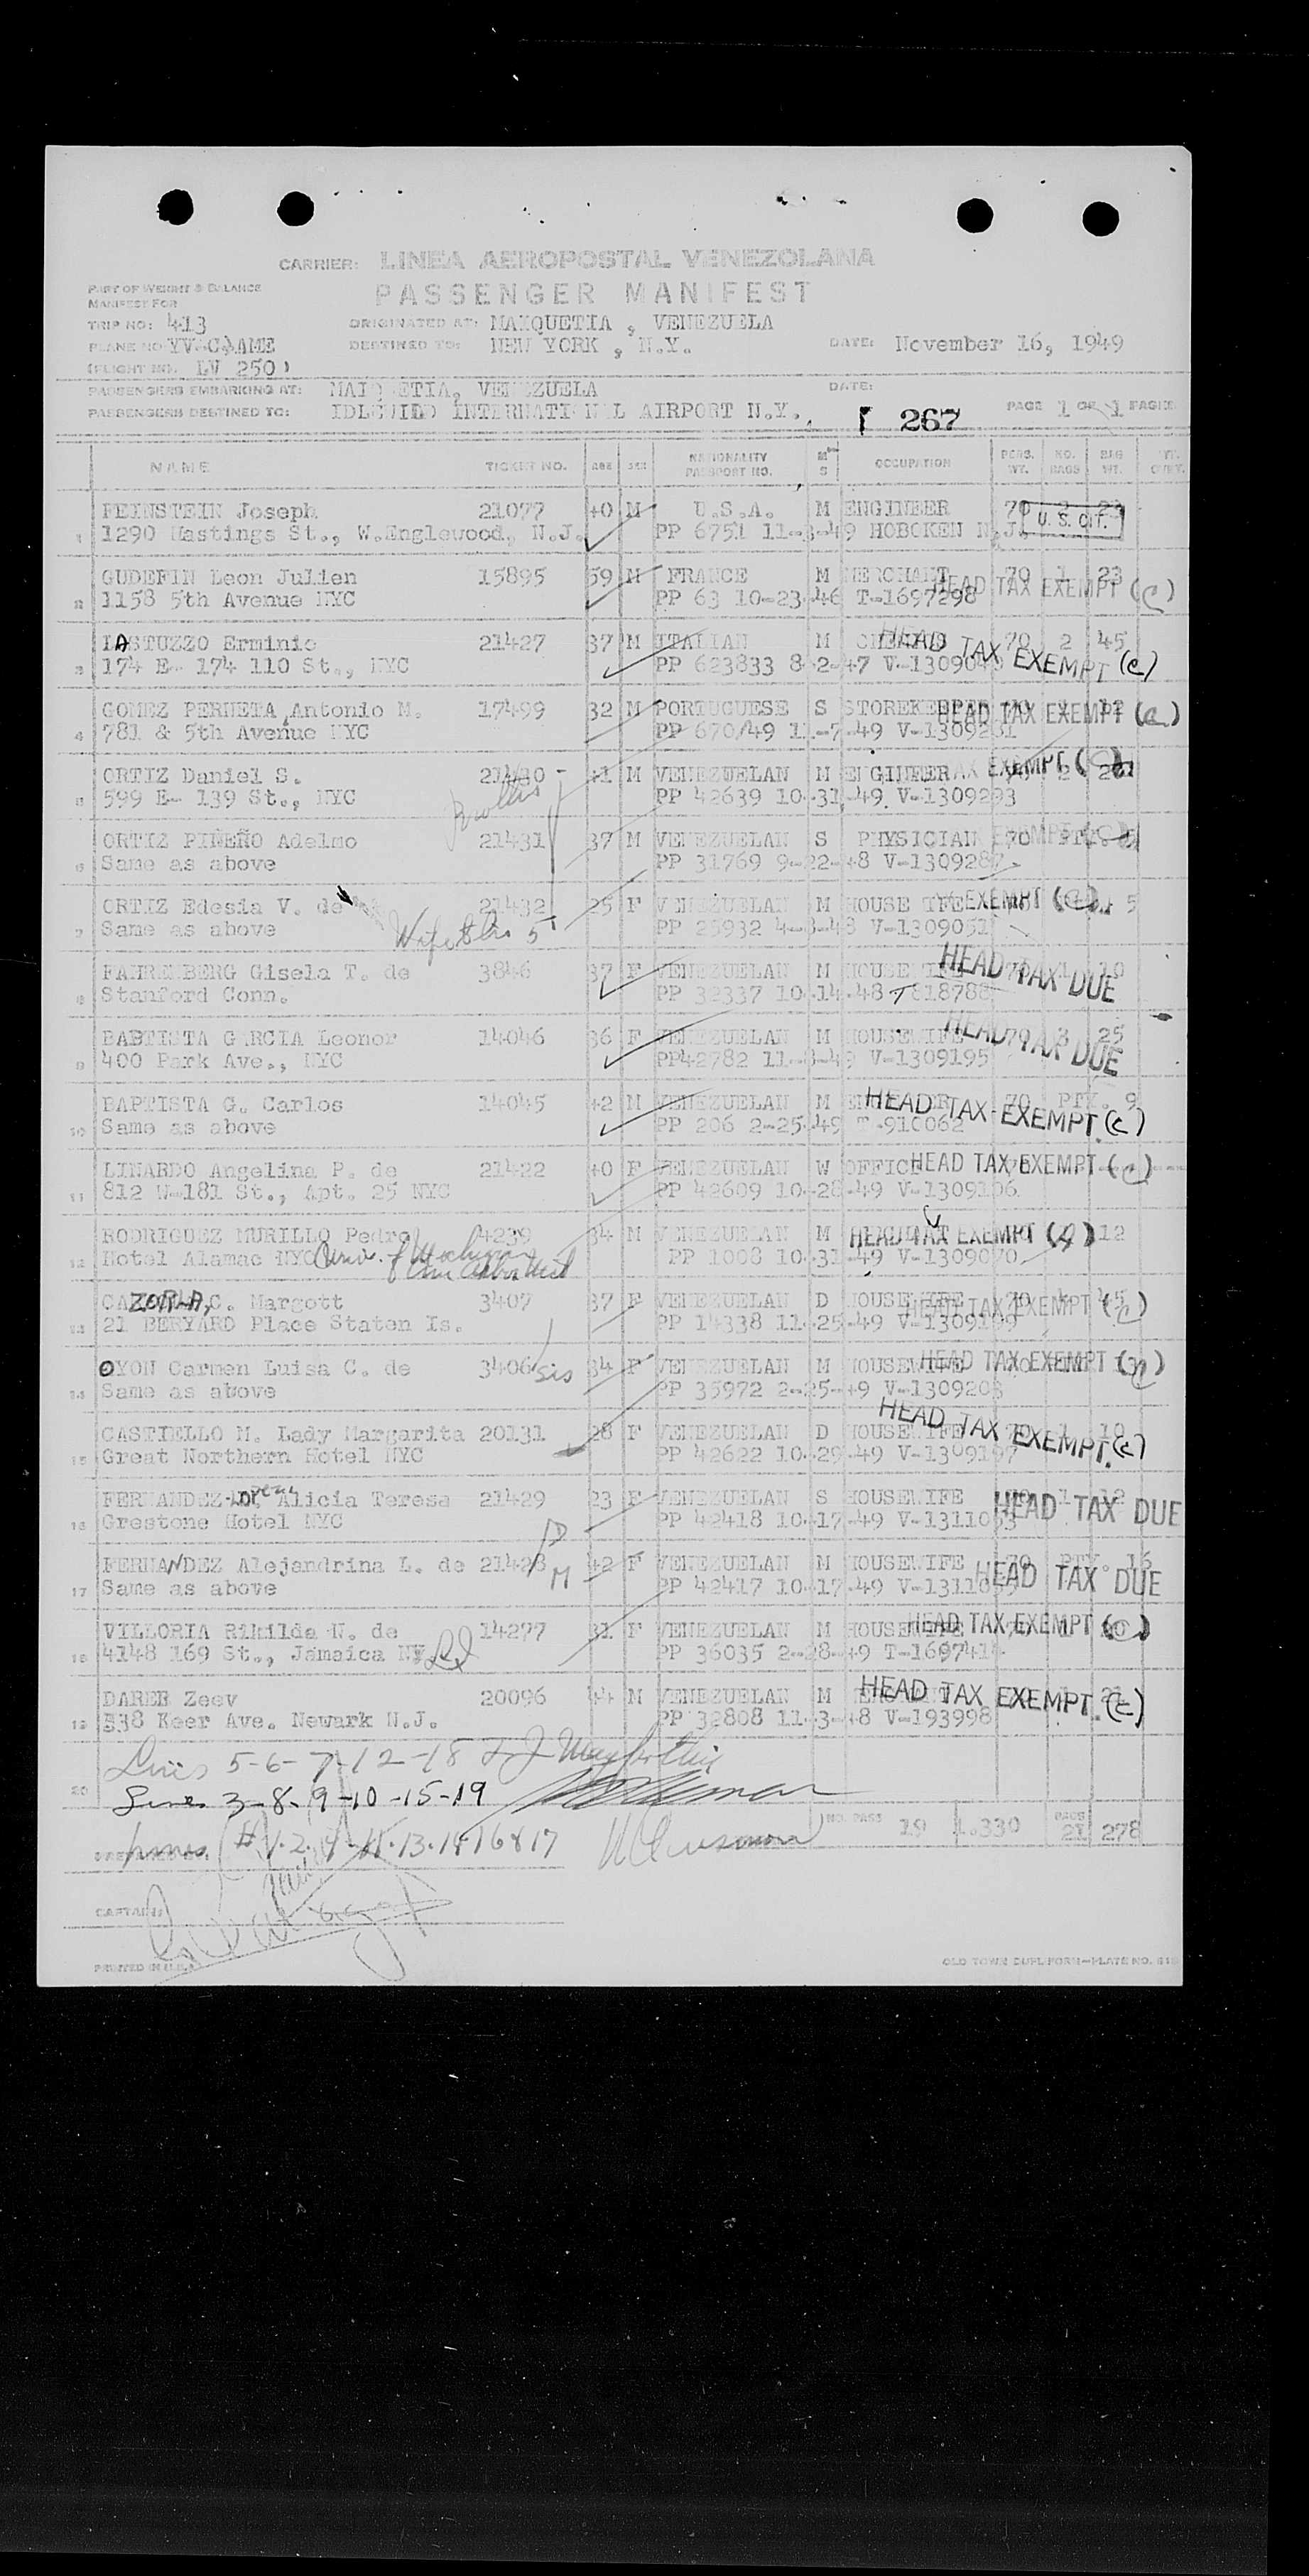 CARRIER: LINEA AEROPOSTAL VENEZOLANA
PART OF WEIGHT & BALANCE
MANIFEST FOR
PASSENGER MANIFEST
TRIP NO: 413 ORIGINATED AT: MAIQUETIA , VENEZUELA
PLANE NO YV-C-AME DESTINED TO: NEW YORK , N.Y. DATE: November 16, 1949
(FLIGHT NO. LV 250)
PASSENGERS EMBARKING AT: MAIQUETIA, VENEZUELA DATE:
PASSENGERS DESTINED TO: IDLEWILD INTERNATIONAL AIRPORT N.Y. 267 PAGE 1 OF 1 PAGES
NAME TICKET NO. AGE SEX NATIONALITY PASSPORT NO. M S OCCUPATION PERS. WT. NO. BAGS BAG WT.
FEINSTEIN Joseph 21077 40 M U.S.A. M ENGINEER 70 23
1 1290 Hastings St., W.Englewood, N.J. PP 6751 11-3-49 HOBOKEN N.J. U. S. CIT.
GUDEFIN Leon Julien 15895 59 M FRANCE M MERCHANT 70 1 23
2 1158 5th Avenue NYC PP 63 10-23-46 T-1697298 HEAD TAX EXEMPT (C)
LASTUZZO Erminio 21427 37 M ITALIAN M 70 2 45
3 174 E- 174 110 St., NYC PP 623833 8-2-47 HEAD TAX EXEMPT (C)
GOMEZ PERNETA Antonio M. 17499 32 M PORTUGUESE S STOREKEEPER 12
4 781 & 5th Avenue NYC PP 670/49 11-7-49 V-1309231 HEAD TAX EXEMPT
ORTIZ Daniel S. 21430 41 M VENEZUELAN M ENGINEER 2 EXEMPT
5 599 E- 139 St., NYC PP 42639 10-31-49 V-1309293
ORTIZ PIÑEÑO Adelmo 21431 37 M VENEZUELAN S PHYSICIAN 70 EXEMPT
6 Same as above PP 31769 9-22-48 V-1309287
ORTIZ Edesia V. de 21432 25 F VENEZUELAN M HOUSEWIFE EXEMPT 5
7 Same as above Wife PP 25932 4-8-48 V-1309051
FAHRENBERG Gisela T. de 3846 37 F VENEZUELAN M HOUSEWIFE 1 10
8 Stanford Conn. PP 32337 10-14-48 T 818788 HEAD TAX DUE
BABTISTA GARCIA Leonor 14046 36 F VENEZUELAN M HOUSEWIFE 70 3 25
9 400 Park Ave., NYC PP42782 11-8-49 V-1309195 HEAD TAX DUE
BAPTISTA G. Carlos 14045 42 M VENEZUELAN M 70 PTY. 9
10 Same as above PP 206 2-25-49 HEAD TAX EXEMPT (C)
LINARDO Angelina P. de 21422 40 F VENEZUELAN W HEAD TAX EXEMPT (C)
11 812 W-181 St., Apt. 25 NYC PP 42609 10-28-49 V-1309106
RODRIGUEZ MURILLO Pedro 4239 34 M VENEZUELAN M HEAD TAX EXEMPT 12
12 Hotel Alamac NYC Univ. of Michigan PP 1008 10-31-49 V-1309070
ZORLA, C. Margott 3407 37 F VENEZUELAN D HOUSEWIFE 70 45
13 21 BERYARD Place Staten Is. PP 14338 11-25-49 V-1309199 HEAD TAX EXEMPT (C)
OYON Carmen Luisa C. de 3406 sis 34 F VENEZUELAN M HOUSEWIFE HEAD TAX EXEMPT
14 Same as above PP 35972 2-25-49 V-1309203
CASTIELLO M. Lady Margarita 20131 28 F VENEZUELAN D HOUSEWIFE 1 18
15 Great Northern Hotel NYC PP 42622 10-29-49 V-1309197 HEAD TAX EXEMPT (C)
FERNANDEZ Alicia Teresa 21429 23 F VENEZUELAN S HOUSEWIFE 1 12
16 Grestone Hotel NYC D PP 42418 10-17-49 HEAD TAX DUE
FERNANDEZ Alejandrina L. de 21428 42 F VENEZUELAN M HOUSEWIFE 70 PTY. 16
17 Same as above M PP 42417 10-17-49 HEAD TAX DUE
VILLORIA Rihilda N. de 14277 31 F VENEZUELAN M HOUSEWIFE HEAD TAX EXEMPT
18 4148 169 St., Jamaica NY PP 36035 2-28-49 T-1697414
DARER Zeev 20096 44 M VENEZUELAN M HEAD TAX EXEMPT (C)
19 338 Keer Ave. Newark N.J. PP 32808 11-3-48 V-193998
Lines 5-6-7-12-18
20 Lines 3-8-9-10-15-19
NO. PASS 19 1.330 BAGS 21 278
# 1.2.4-11.13.14 16 & 17
CAPTAIN:
PRINTED IN U.S.A. OLD TOWN DUPLIFORM—PLATE NO.